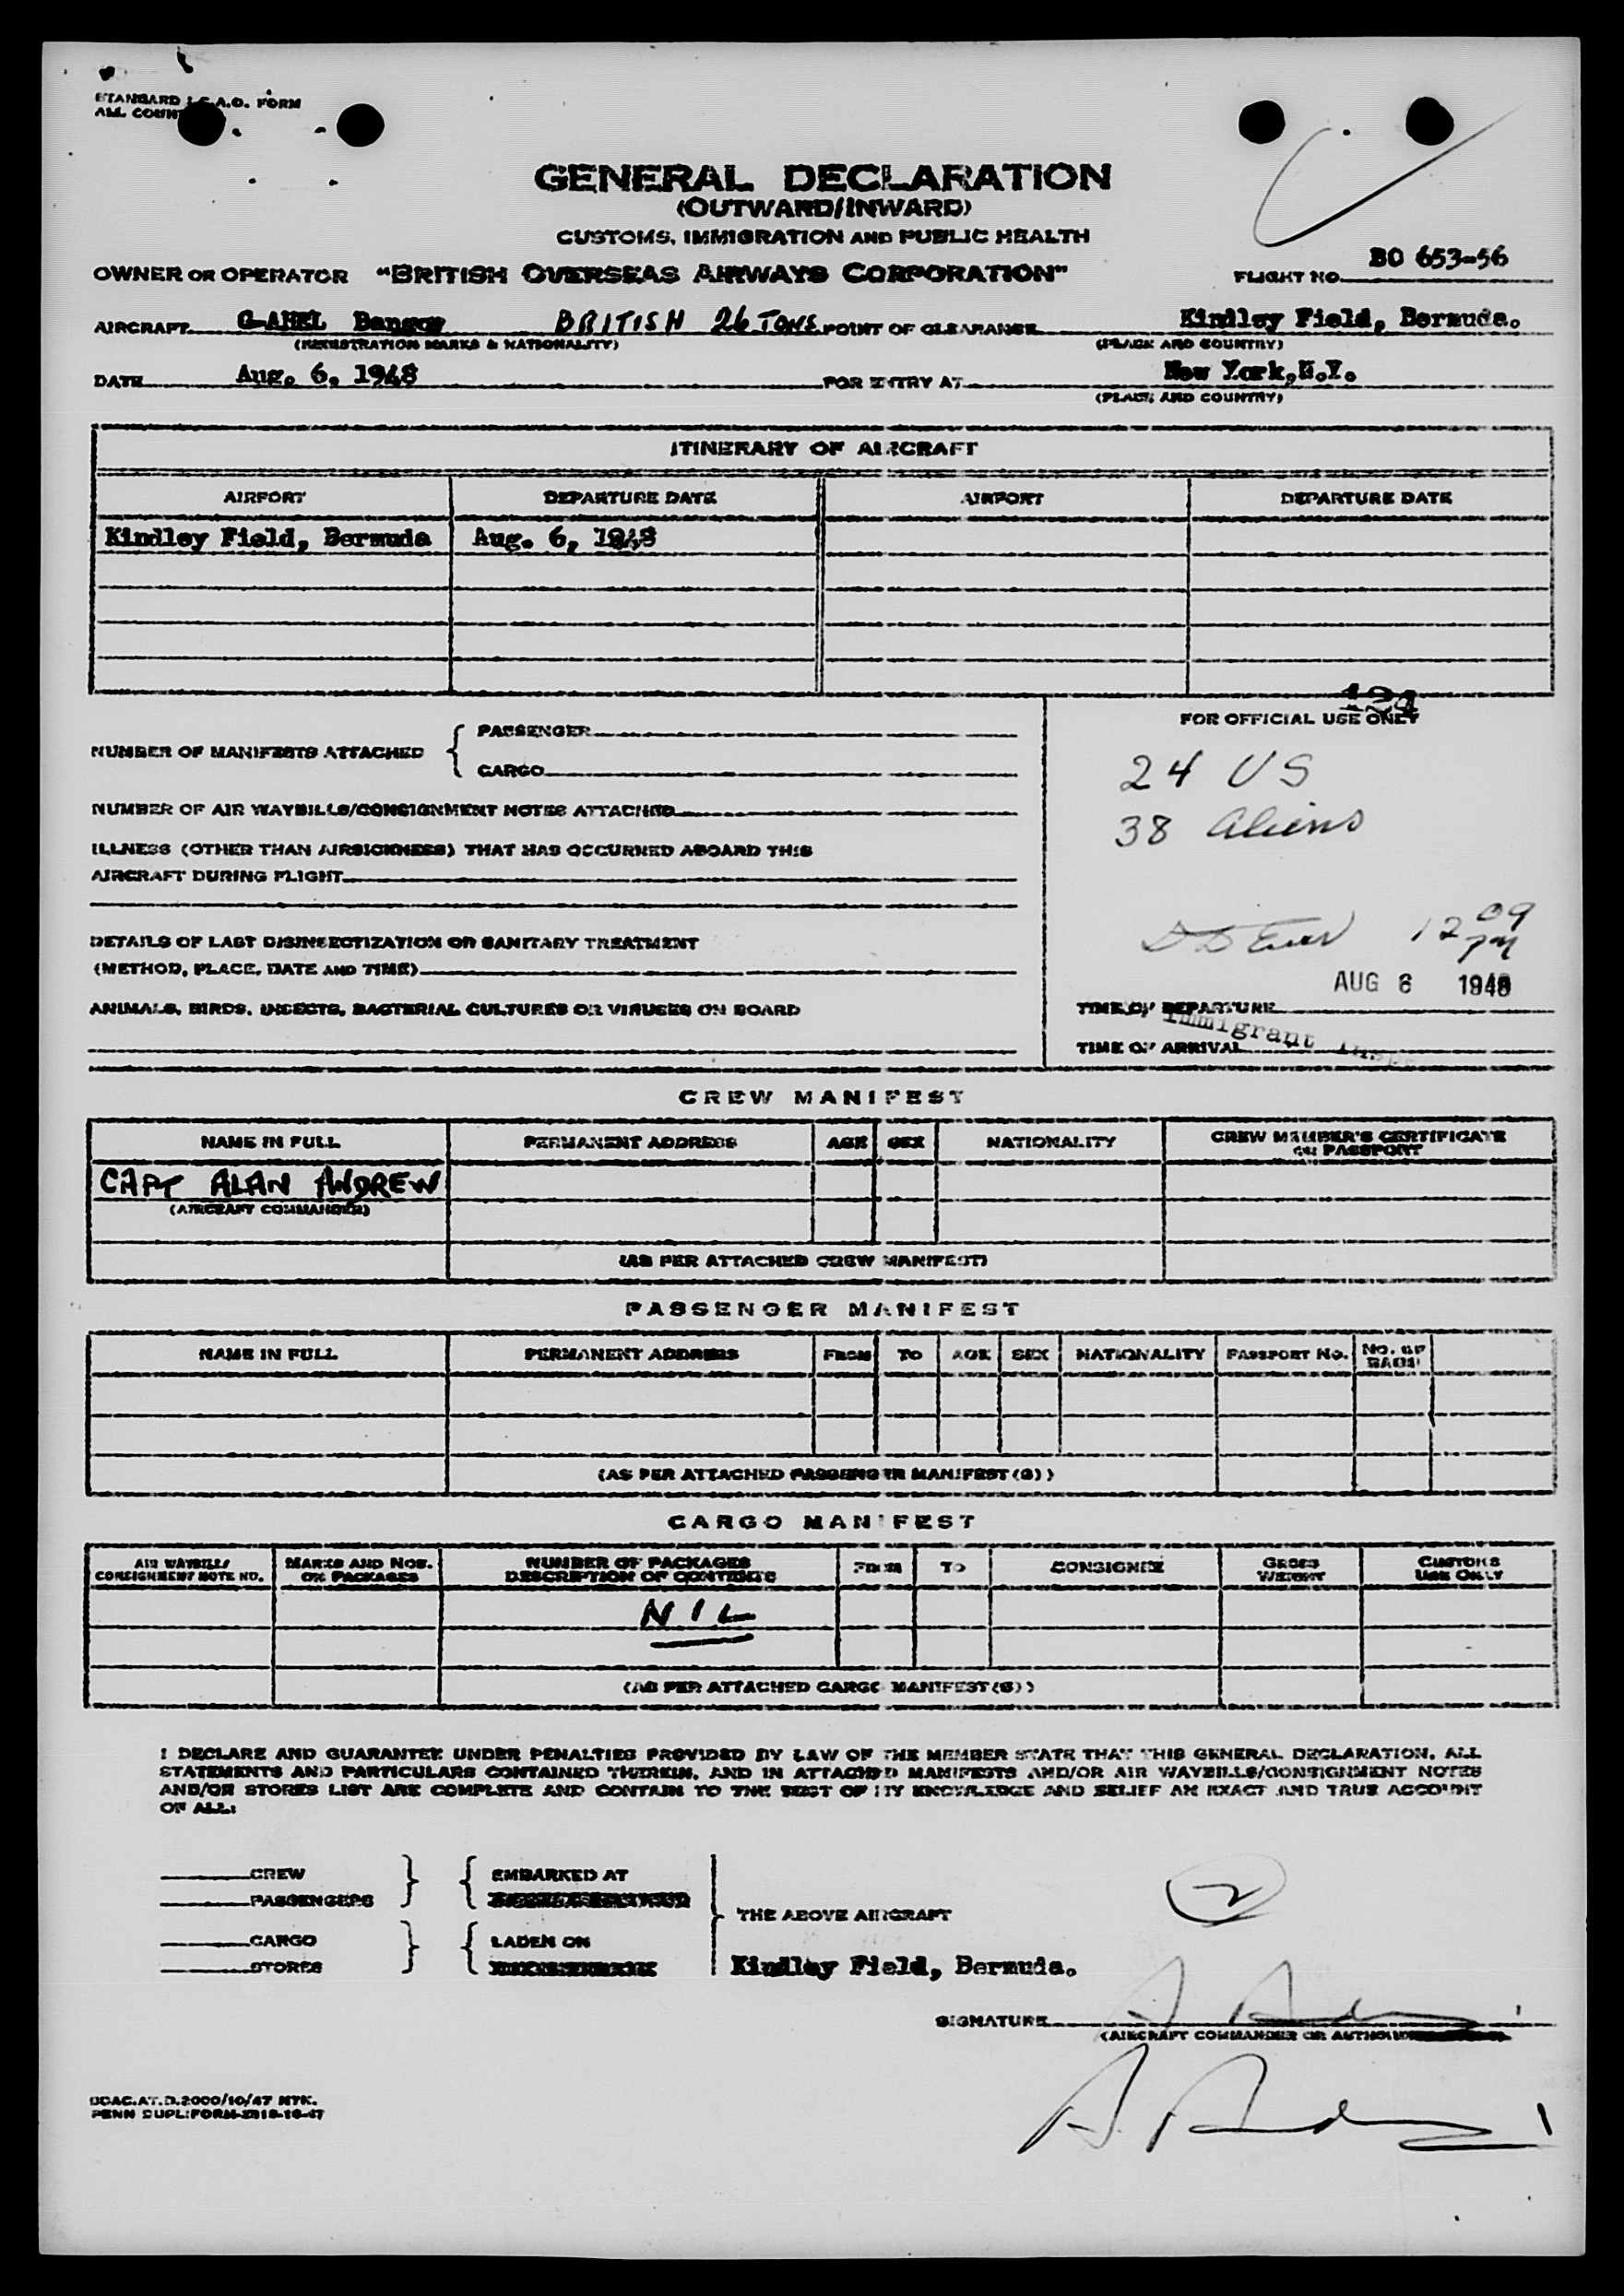 STANDARD I.C.A.O. FORM
ALL COUNT
GENERAL DECLARATION
(OUTWARD/INWARD)
CUSTOMS, IMMIGRATION AND PUBLIC HEALTH
OWNER OR OPERATOR "BRITISH OVERSEAS AIRWAYS CORPORATION" FLIGHT NO. BO 653-56
AIRCRAFT G-AHEL Bangor BRITISH 26 TONS POINT OF CLEARANCE Kindley Field, Bermuda.
(REGISTRATION MARKS & NATIONALITY) (PLACE AND COUNTRY)
DATE Aug. 6, 1948 FOR ENTRY AT New York, N.Y.
(PLACE AND COUNTRY)
ITINERARY OF AIRCRAFT
AIRPORT DEPARTURE DATE AIRPORT DEPARTURE DATE
Kindley Field, Bermuda Aug. 6, 1948
124
FOR OFFICIAL USE ONLY
NUMBER OF MANIFESTS ATTACHED { PASSENGER
CARGO
24 US
NUMBER OF AIR WAYBILLS/CONSIGNMENT NOTES ATTACHED
38 aliens
ILLNESS (OTHER THAN AIRSICKNESS) THAT HAS OCCURRED ABOARD THIS
AIRCRAFT DURING FLIGHT
12 09 PM
DETAILS OF LAST DISINSECTIZATION OR SANITARY TREATMENT
(METHOD, PLACE, DATE AND TIME)
AUG 6 1948
ANIMALS, BIRDS, INSECTS, BACTERIAL CULTURES OR VIRUSES ON BOARD
TIME OF DEPARTURE
Immigrant
TIME OF ARRIVAL
CREW MANIFEST
NAME IN FULL PERMANENT ADDRESS AGE SEX NATIONALITY CREW MEMBER'S CERTIFICATE
OR PASSPORT
CAPT ALAN ANDREW
(AIRCRAFT COMMANDER)
(AS PER ATTACHED CREW MANIFEST)
PASSENGER MANIFEST
NAME IN FULL PERMANENT ADDRESS FROM TO AGE SEX NATIONALITY PASSPORT NO. NO. OF
BAGS
(AS PER ATTACHED PASSENGER MANIFEST(S))
CARGO MANIFEST
AIR WAYBILLS/ MARKS AND NOS. NUMBER OF PACKAGES FROM TO CONSIGNEE GROSS CUSTOMS
CONSIGNMENT NOTE NO. ON PACKAGES DESCRIPTION OF CONTENTS WEIGHT USE ONLY
NIL
(AS PER ATTACHED CARGO MANIFEST(S))
I DECLARE AND GUARANTEE UNDER PENALTIES PROVIDED BY LAW OF THE MEMBER STATE THAT THIS GENERAL DECLARATION, ALL
STATEMENTS AND PARTICULARS CONTAINED THEREIN, AND IN ATTACHED MANIFESTS AND/OR AIR WAYBILLS/CONSIGNMENT NOTES
AND/OR STORES LIST ARE COMPLETE AND CONTAIN TO THE BEST OF MY KNOWLEDGE AND BELIEF AN EXACT AND TRUE ACCOUNT
OF ALL:
CREW } { EMBARKED AT
PASSENGERS
THE ABOVE AIRCRAFT
2
CARGO } { LADEN ON
STORES
Kindley Field, Bermuda.
SIGNATURE
(AIRCRAFT COMMANDER OR
BOAC.AT.D.2000/10/47 NYK.
PENN DUPL:FORM-2318-10-47